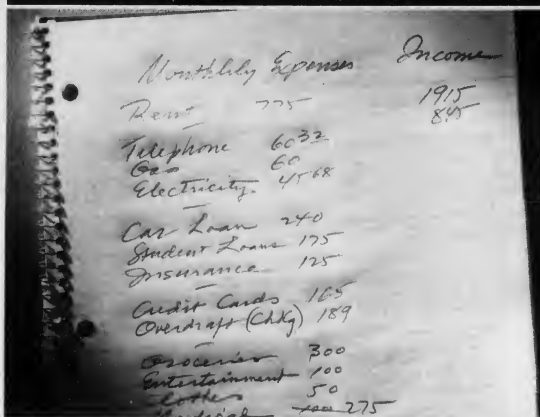 Monthly Expenses Income
Rent 775 1915
845
Telephone 60 32
Gas 60
Electricity 45 68
Car Loan 240
Student Loans 175
Insurance 125
Credit Cards 165
Overdraft (Chkg) 189
Groceries 300
Entertainment 100
Clothes 50
275